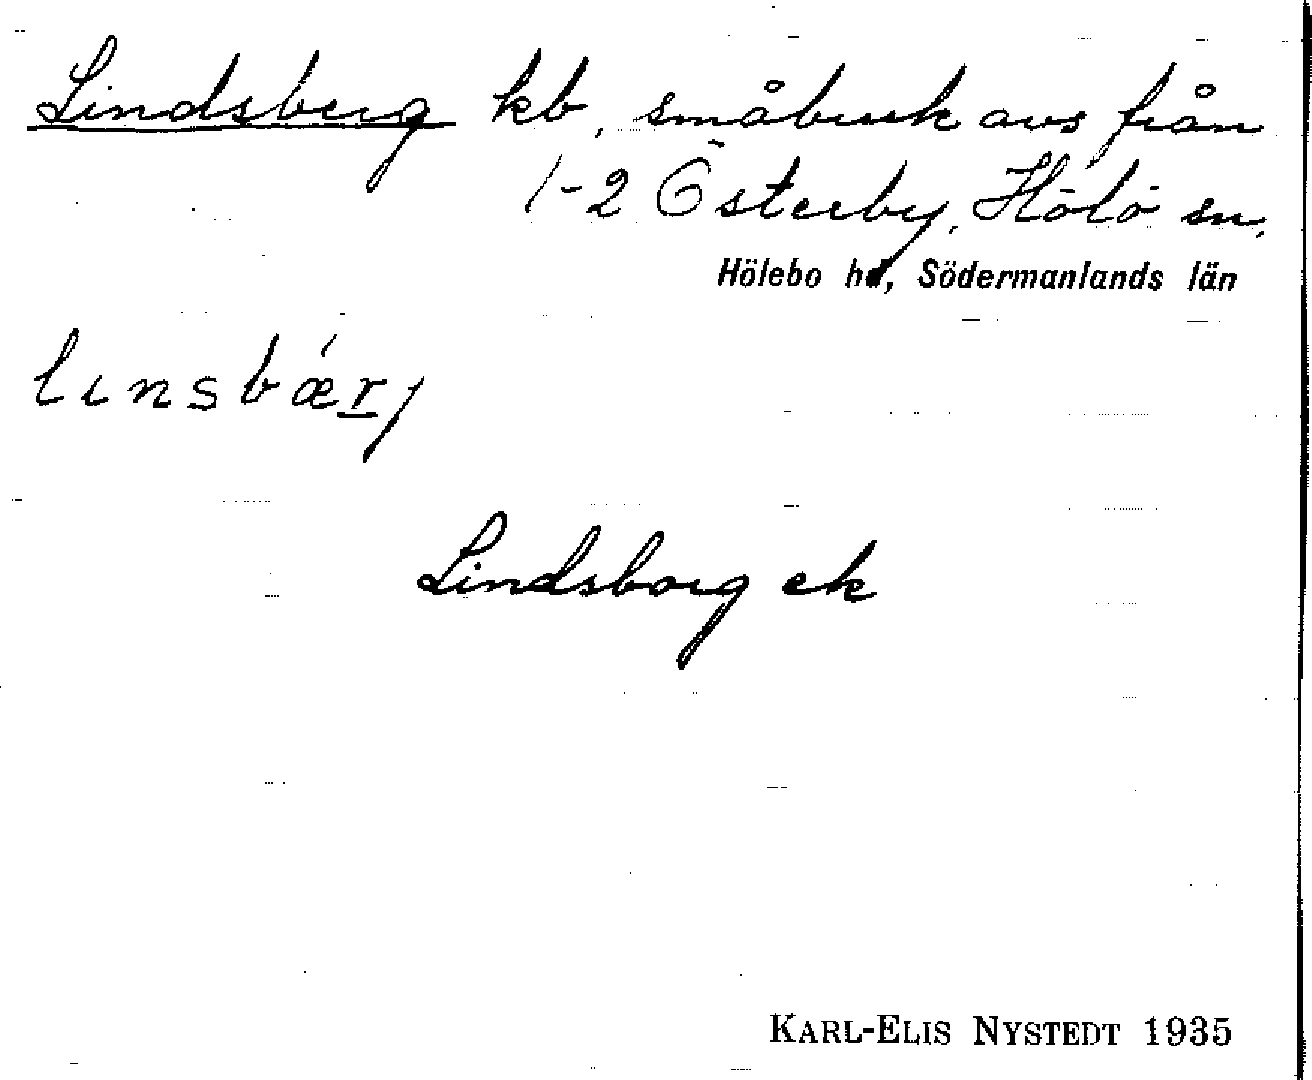 Lindsberg kb, småbruk avs från
1-2 Österby, Hölö sn,
Hölebo hd, Södermanlands län
lınsbǽrj
Lindsborg ek
KARL-ELIS NYSTEDT 1935